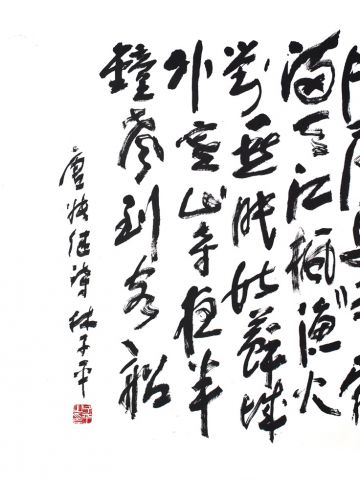 滿天江楓漁火
對愁眠姑蘇城
外寒山寺夜半
鐘聲到客船
唐張继诗林子平